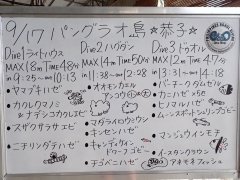 9/17 パングラオ島 ☆恭子☆
Dive1 ライトハウス
MAX 18m TIME 48分
in 9:25 ~ out 10:13
ヤマブキハゼ
カクレクマノミ
& ナデシコカクレエビ
スザクサラサエビ
ニチリンダテハゼ
Dive2 ハウダン
MAX 14m TIME 50分
in 11:38 ~ out 12:28
オオモンカエル
アンコウ
マダライロウミウシ
キンセンハゼ
キャンディケイン
ドワーフゴビー
Dive3 トゥオル
MAX 12m TIME 47分
in 13:31 ~ out 14:18
バーチークダムゼル
カニハゼ
ヒノマルハゼ
ムーンスポットシュリンプゴビー
マンジュウイシモチ
イースタンクラウン
アネモネフィッシュ